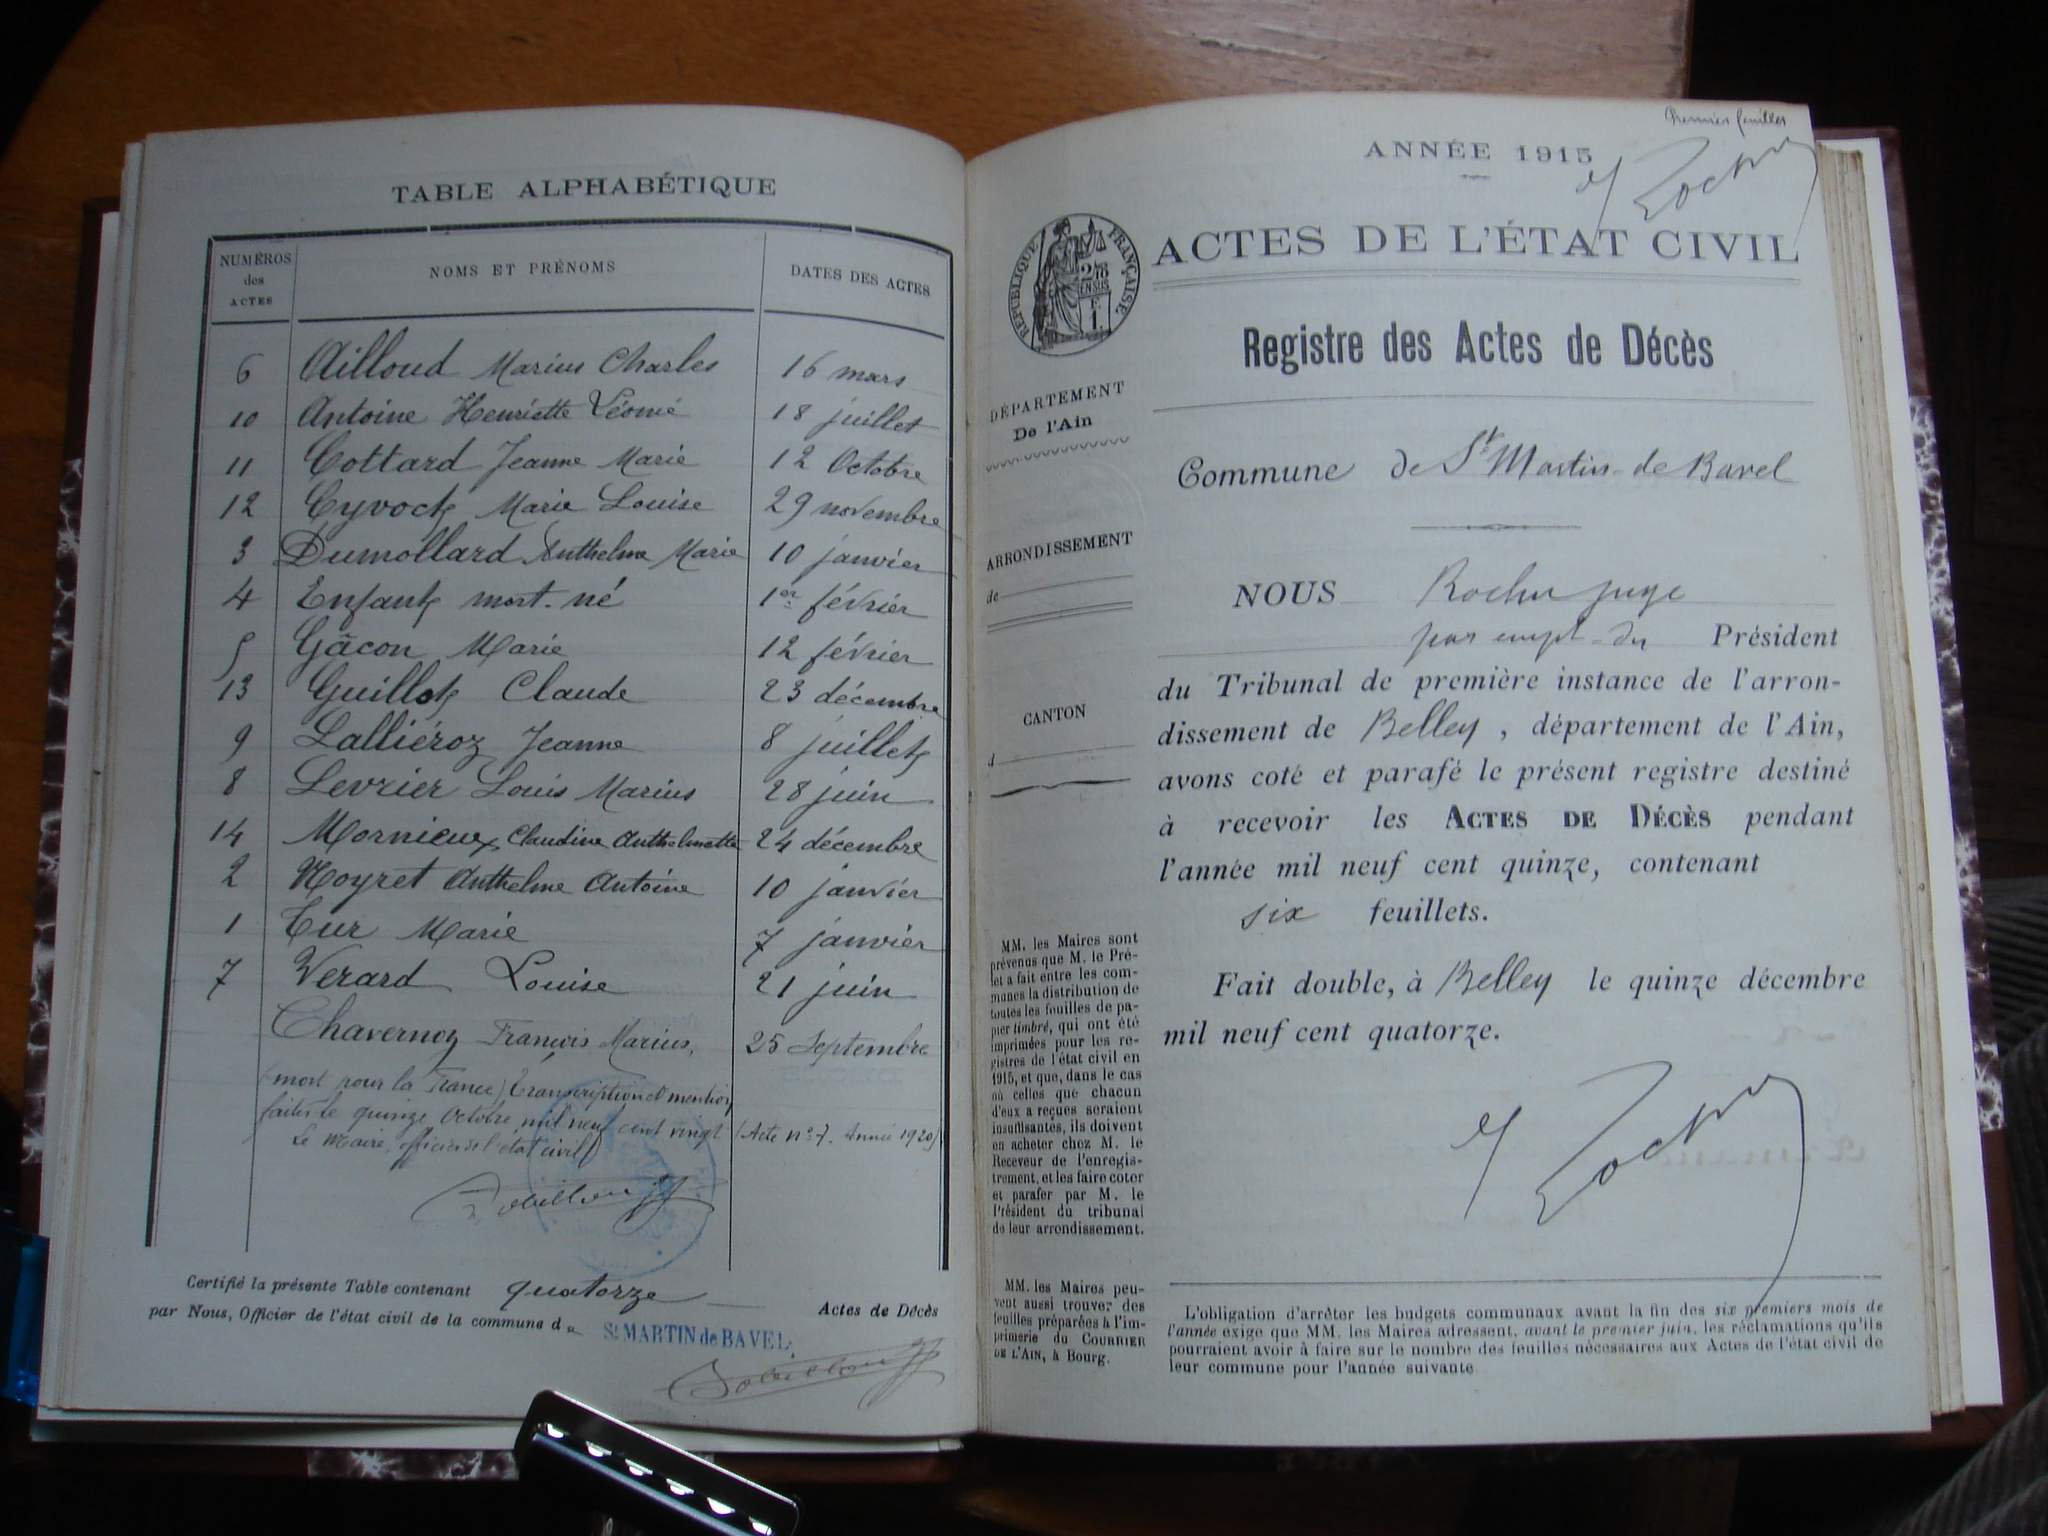 TABLE ALPHABÉTIQUE
NUMÉROS des ACTES
NOMS ET PRÉNOMS
DATES DES ACTES
6 Ailloud Marius Charles 16 mars
10 Antoine Henriette Léonie 18 juillet
11 Cottard Jeanne Marie 12 Octobre
12 Cyvoct Marie Louise 29 novembre
3 Dumollard Anthelme Marie 10 janvier
4 Enfant mort-né 1er février
5 Gâcon Marie 12 février
13 Guillot Claude 23 décembre
9 Lalliéroz Jeanne 8 juillet
8 Levrier Louis Marius 28 juin
14 Mornieux Claudine Anthelmette 24 décembre
2 Noyret Anthelme Antoine 10 janvier
1 Tur Marie 7 janvier
7 Verard Louise 21 juin
Chavernoz François Marius, 25 Septembre
(mort pour la France) Transcription et mention
faites le quinze Octobre mil neuf cent vingt (Acte n° 7. Année 1920)
Le Maire, officier de l'état civil
Certifié la présente Table contenant quatorze Actes de Décès
par Nous, Officier de l'état civil de la commune de St MARTIN de BAVEL
Premier feuillet
ANNÉE 1915
RÉPUBLIQUE FRANÇAISE
ACTES DE L'ÉTAT CIVIL
Registre des Actes de Décès
DÉPARTEMENT
De l'Ain
Commune de St Martin-de Bavel
ARRONDISSEMENT
de
NOUS Rochu juge
par empt du Président
du Tribunal de première instance de l'arron-
CANTON
d
dissement de Belley, département de l'Ain,
avons coté et parafé le présent registre destiné
à recevoir les ACTES DE DÉCÈS pendant
l'année mil neuf cent quinze, contenant
six feuillets.
Fait double, à Belley le quinze décembre
mil neuf cent quatorze.
MM. les Maires sont
prévenus que M. le Pré-
fet a fait entre les com-
munes la distribution de
toutes les feuilles de pa-
pier timbré, qui ont été
imprimées pour les re-
gistres de l'état civil en
1915, et que, dans le cas
où celles que chacun
d'eux a reçues seraient
insuffisantes, ils doivent
en acheter chez M. le
Receveur de l'enregis-
trement, et les faire coter
et parafer par M. le
Président du tribunal
de leur arrondissement.
MM. les Maires peu-
vent aussi trouver des
feuilles préparées à l'im-
primerie du COURRIER
DE L'AIN, à Bourg.
L'obligation d'arrêter les budgets communaux avant la fin des six premiers mois de
l'année exige que MM. les Maires adressent, avant le premier juin, les réclamations qu'ils
pourraient avoir à faire sur le nombre des feuilles nécessaires aux Actes de l'état civil de
leur commune pour l'année suivante